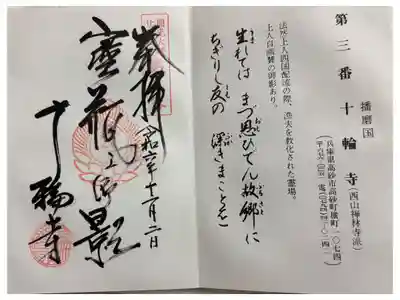 播磨国
第三番 十輪寺(西山禅林寺派)
兵庫県高砂市高砂町横町一〇七四
法然上人四国配流の際、漁夫を教化された霊場。
上人自画賛の御影あり。
生れては まづ思ひでん 故郷に
ちぎりし友の 深きまことを
奉拝
令和六年十一月二日
御影
十輪寺